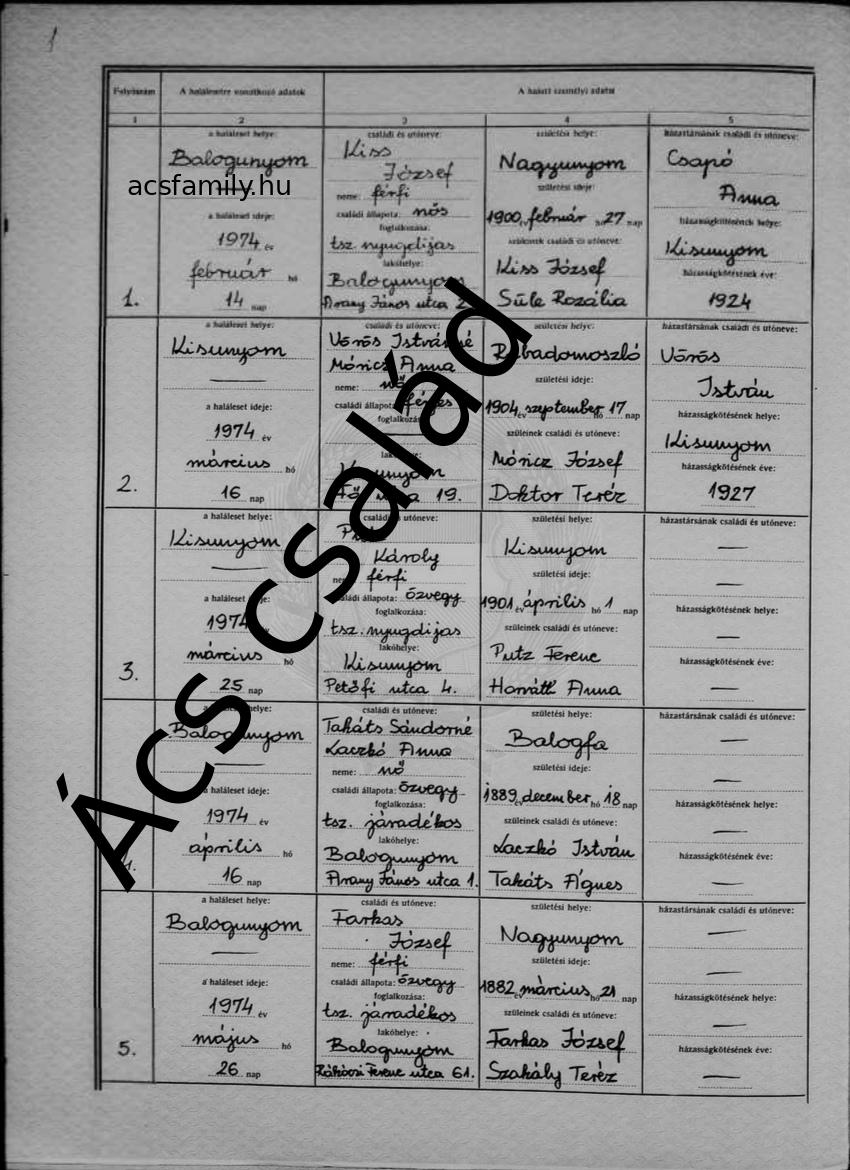 1
Folyószám
A halálesetre vonatkozó adatok
A halott személyi adatai
1
2
3
4
5
a haláleset helye:
Balogunyom
acsfamily.hu
a haláleset ideje:
1974 év
február hó
14 nap
1.
családi és utóneve:
Kiss
József
neme: férfi
családi állapota: nős
foglalkozása:
tsz. nyugdijas
lakóhelye:
Balogunyom
Arany János utca 2
születési helye:
Nagyunyom
születési ideje:
1900 év február hó 27 nap
szüleinek családi és utóneve:
Kiss József
Süle Rozália
házastársának családi és utóneve:
Csapó
Anna
házasságkötésének helye:
Kisunyom
házasságkötésének éve:
1924
a haláleset helye:
Kisunyom
a haláleset ideje:
1974 év
március hó
16 nap
2.
családi és utóneve:
Vörös Istvánné
Móricz Anna
neme: nő
családi állapota: férjes
foglalkozása:
lakóhelye:
Kisunyom
Fő utca 19.
születési helye:
Rábadomoszló
születési ideje:
1904 év szeptember hó 17 nap
szüleinek családi és utóneve:
Móricz József
Doktor Teréz
házastársának családi és utóneve:
Vörös
István
házasságkötésének helye:
Kisunyom
házasságkötésének éve:
1927
a haláleset helye:
Kisunyom
a haláleset ideje:
1974
március hó
25 nap
3.
családi és utóneve:
Károly
neme: férfi
családi állapota: özvegy
foglalkozása:
tsz. nyugdijas
lakóhelye:
Kisunyom
Petőfi utca 4.
születési helye:
Kisunyom
születési ideje:
1901 év április hó 1 nap
szüleinek családi és utóneve:
Putz Ferenc
Horváth Anna
házastársának családi és utóneve:
házasságkötésének helye:
házasságkötésének éve:
a haláleset helye:
Balogunyom
a haláleset ideje:
1974 év
április hó
16 nap
4.
családi és utóneve:
Takáts Sándorné
Laczkó Anna
neme: nő
családi állapota: özvegy
foglalkozása:
tsz. járadékos
lakóhelye:
Balogunyom
Arany János utca 1.
születési helye:
Balogfa
születési ideje:
1889 év december hó 18 nap
szüleinek családi és utóneve:
Laczkó István
Takáts Ágnes
házastársának családi és utóneve:
házasságkötésének helye:
házasságkötésének éve:
a haláleset helye:
Balogunyom
a haláleset ideje:
1974 év
május hó
26 nap
5.
családi és utóneve:
Farkas
József
neme: férfi
családi állapota: özvegy
foglalkozása:
tsz. járadékos
lakóhelye:
Balogunyom
Rákóczi Ferenc utca 61.
születési helye:
Nagyunyom
születési ideje:
1882 év március hó 21 nap
szüleinek családi és utóneve:
Farkas József
Szakály Teréz
házastársának családi és utóneve:
házasságkötésének helye:
házasságkötésének éve:
Ács család